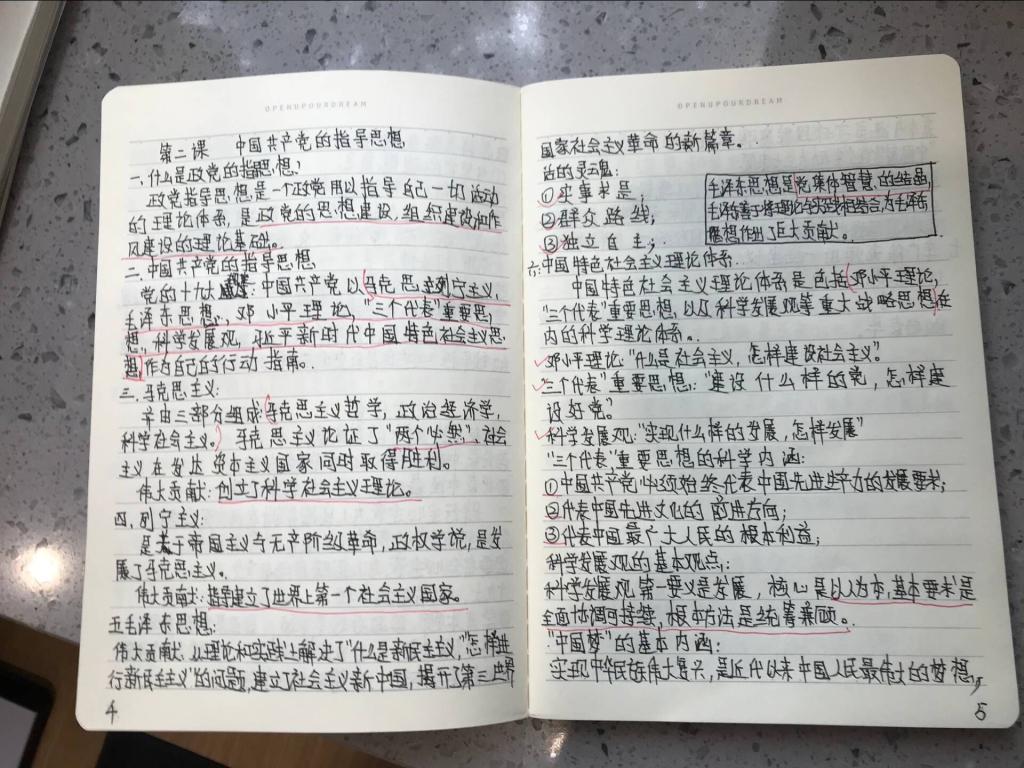 OPENUPOURDREAM
第二课 中国共产党的指导思想
一、什么是政党的指导思想?
政党指导思想是一个政党用以指导自己一切活动
的理论体系,是政党的思想建设,组织建设和作
风建设的理论基础。
二、中国共产党的指导思想
党的十九大:中国共产党以马克思主列宁主义,
毛泽东思想,邓小平理论,“三个代表”重要思
想,科学发展观,习近平新时代中国特色社会主义思
想作为自己的行动指南。
三、马克思主义:
并由三部分组成:马克思主义哲学,政治经济学,
科学社会主义。马克思主义论证了“两个必然”,社会
主义在发达资本主义国家同时取得胜利。
伟大贡献:创立了科学社会主义理论。
四、列宁主义:
是关于帝国主义与无产阶级革命,政权学说,是发
展了马克思主义。
伟大贡献:指导建立了世界上第一个社会主义国家。
五毛泽东思想:
伟大贡献:从理论和实践上解决了“什么是新民主主义,“怎样进
行新民主主义”的问题,建立了社会主义新中国,揭开了第三世界
4
OPENUPOURDREAM
国家社会主义革命的新篇章。
活的灵魂:
①实事求是;
②群众路线;
③独立自主;
毛泽东思想是党集体智慧的结晶
毛泽东善于将理论与实践相结合,为毛泽东
思想作出了巨大贡献。
六:中国特色社会主义理论体系
中国特色社会主义理论体系是包括邓小平理论,
“三个代表”重要思想,以及科学发展观等重大战略思想在
内的科学理论体系。
邓小平理论:“什么是社会主义,怎样建设社会主义”。
“三个代表”重要思想:“建设什么样的党,怎样建
设好党。”
科学发展观:“实现什么样的发展,怎样发展”
“三个代表”重要思想的科学内涵:
①中国共产党必须始终代表中国先进生产力的发展要求;
②代表中国先进文化的前进方向;
③代表中国最广大人民的根本利益;
科学发展观的基本观点:
科学发展观第一要义是发展,核心是以人为本,基本要求是
全面协调可持续,根本方法是统筹兼顾。
“中国梦”的基本内涵:
实现中华民族伟大复兴,是近代以来中国人民最伟大的梦想,
5